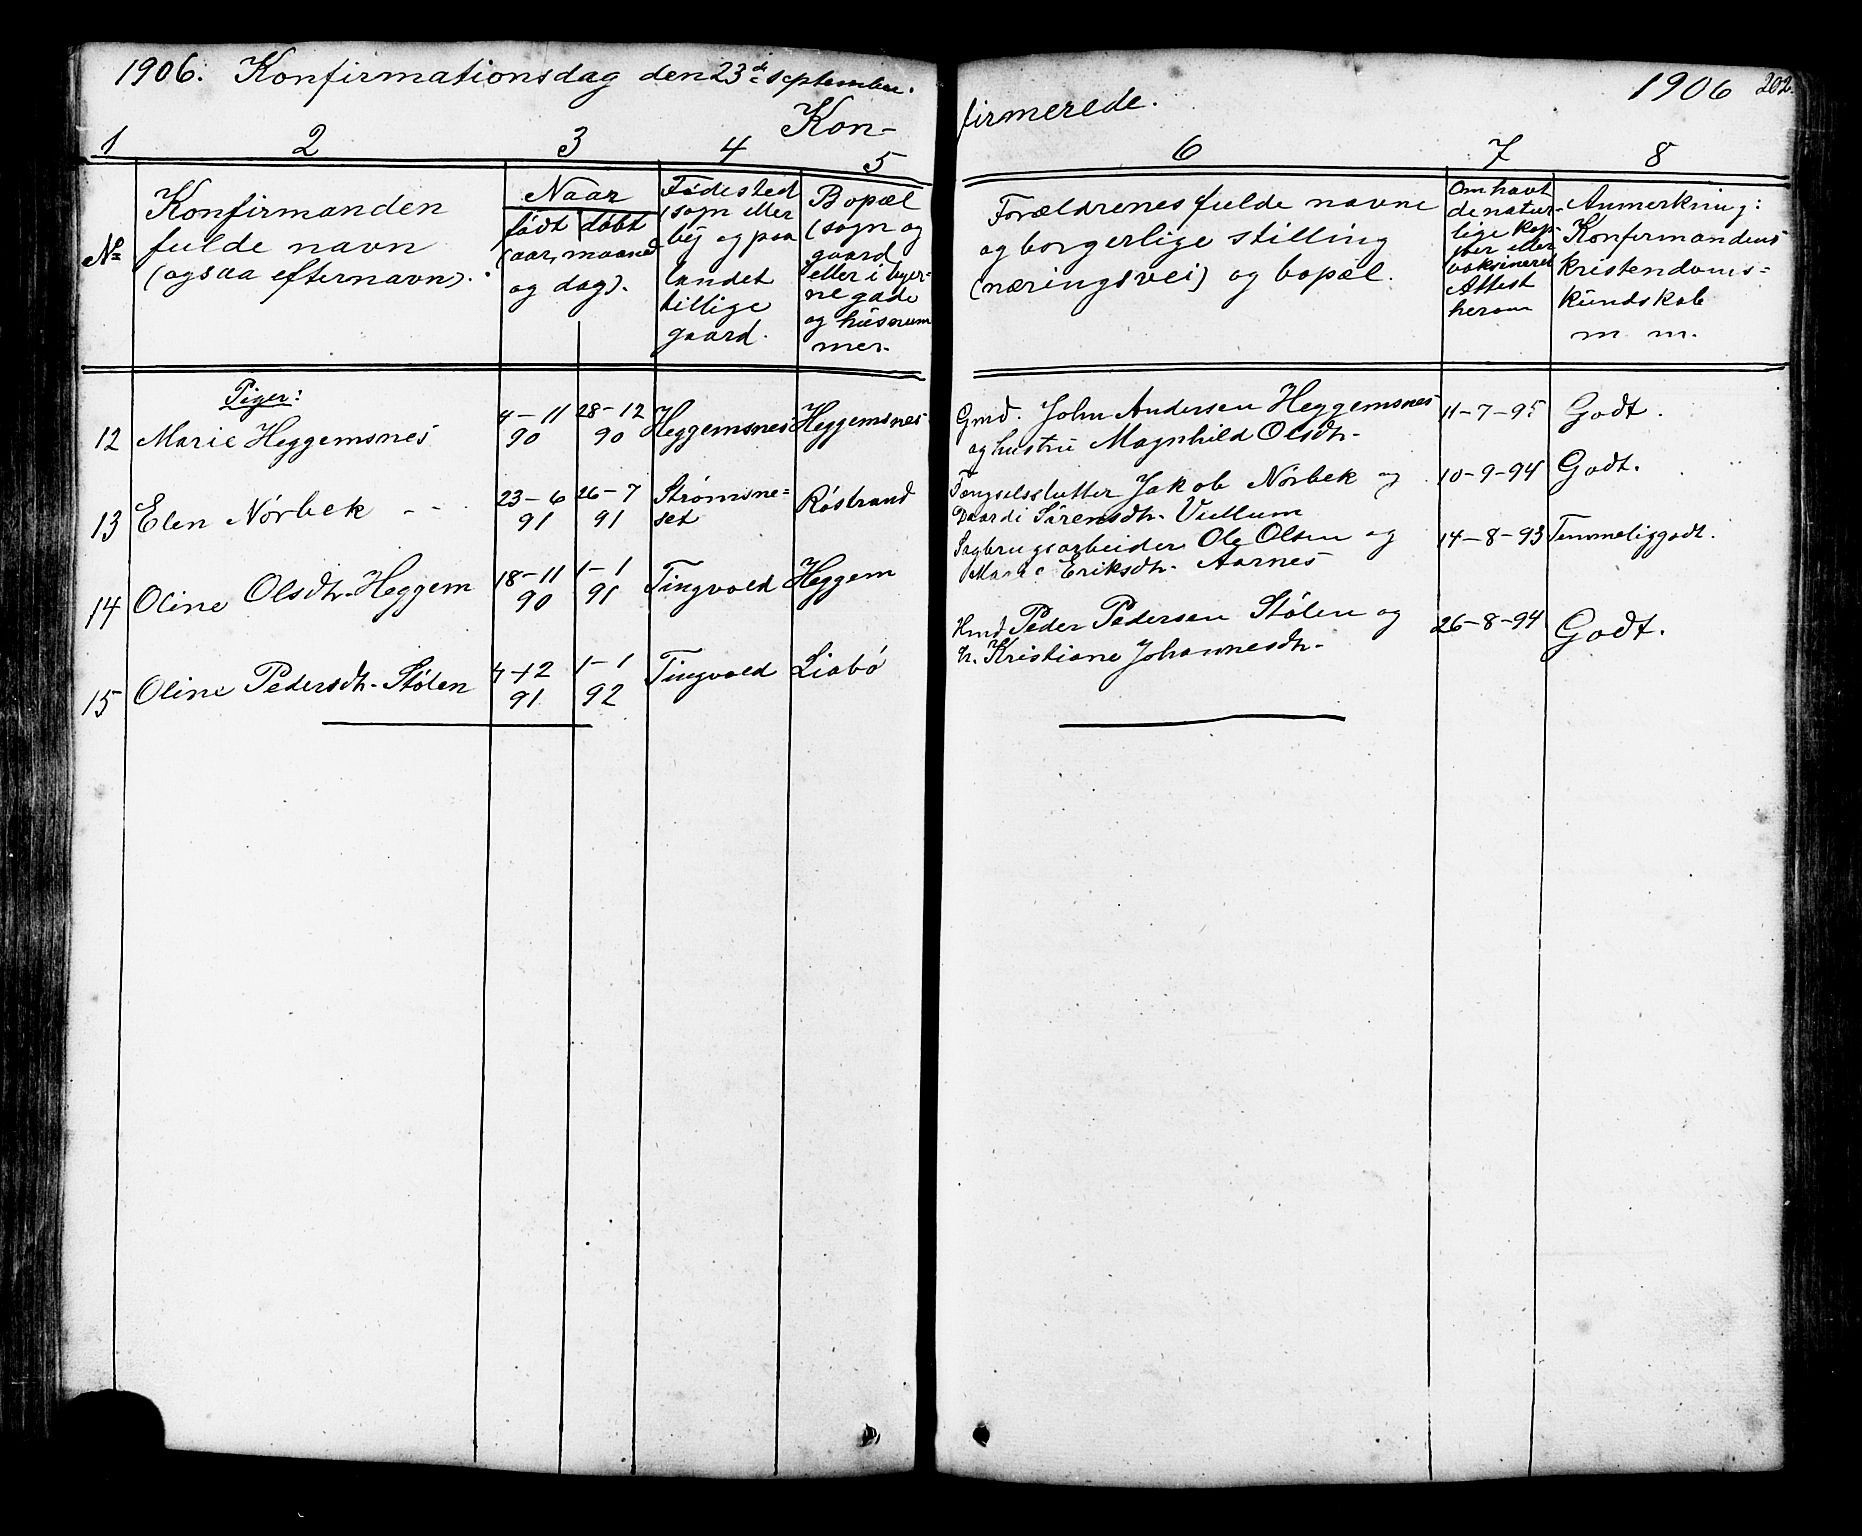 1906. Konfirmationsdag den 23de september.
Kon-
firmerede.
1906 202.
1 2 3 4 5 6 7 8
No
Konfirmanden
fulde navn
(ogsaa efternavn).
Naar
født døbt
(aar, maaned
og dag).
Fødested
(sogn eller
bej og paa
landet
tillige
gaard.
Bopæl
(sogn og
gaard
eller i byer-
ne gade
og hüsnum
mer.
Forældrenes fulde navne
og borgerlige stilling
(næringsvei) og bopæl.
Om havt
de natur-
lige kop-
per eller
vaksineret
Attest
herom
Anmerkning:
Konfirmandens
kristendoms=
kündskab
m. m.
Piger:
12 Marie Heggemsnes 4-11 90 28-12 90 Heggemsnes Heggemsnes Gmd. John Andersen Heggemsnes 11-7-95 Godt.
og hustrü Magnhild Olsdtr.
13 Elen Nørbek 23-6 91 26-7 91 Strømsne= set Røstrand Fængselsslutter Jakob Nørbek og 10-9-94 Godt.
Sørensdtr. Vullum
14 Oline Olsdtr. Heggem 18-11 90 1-1 91 Tingvold Heggem Sagbrugsarbeider Ole Olsen og 14-8-93 Temmeliggodt.
Marie Eriksdtr. Aarnes
15 Oline Pedersdtr. Stølen 4-12 91 1-1 92 Tingvold Liabø Hmd Peder Pedersen Stølen og 26-8-94 Godt.
h. Kristiane Johannesdtr.